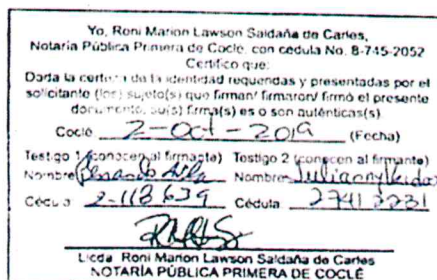 Yo, Roni Marion Lawson Saldaña de Carles,
Notaria Pública Primera de Coclé, con cédula No. 8-745-2052
Certifico que:
Dada la certeza de la identidad requeridas y presentadas por el
solicitante (los) sujeto(s) que firman/ firmaron/ firmó el presente
documento, su(s) firma(s) es o son auténticas(s)
Coclé 2-Oct-2019 (Fecha)
Testigo 1 (conocen al firmante) Testigo 2 (conocen al firmante)
Nombre Nombre
Cédula 2-118 639 Cédula
Licda. Roni Marion Lawson Saldaña de Carles
NOTARÍA PÚBLICA PRIMERA DE COCLÉ